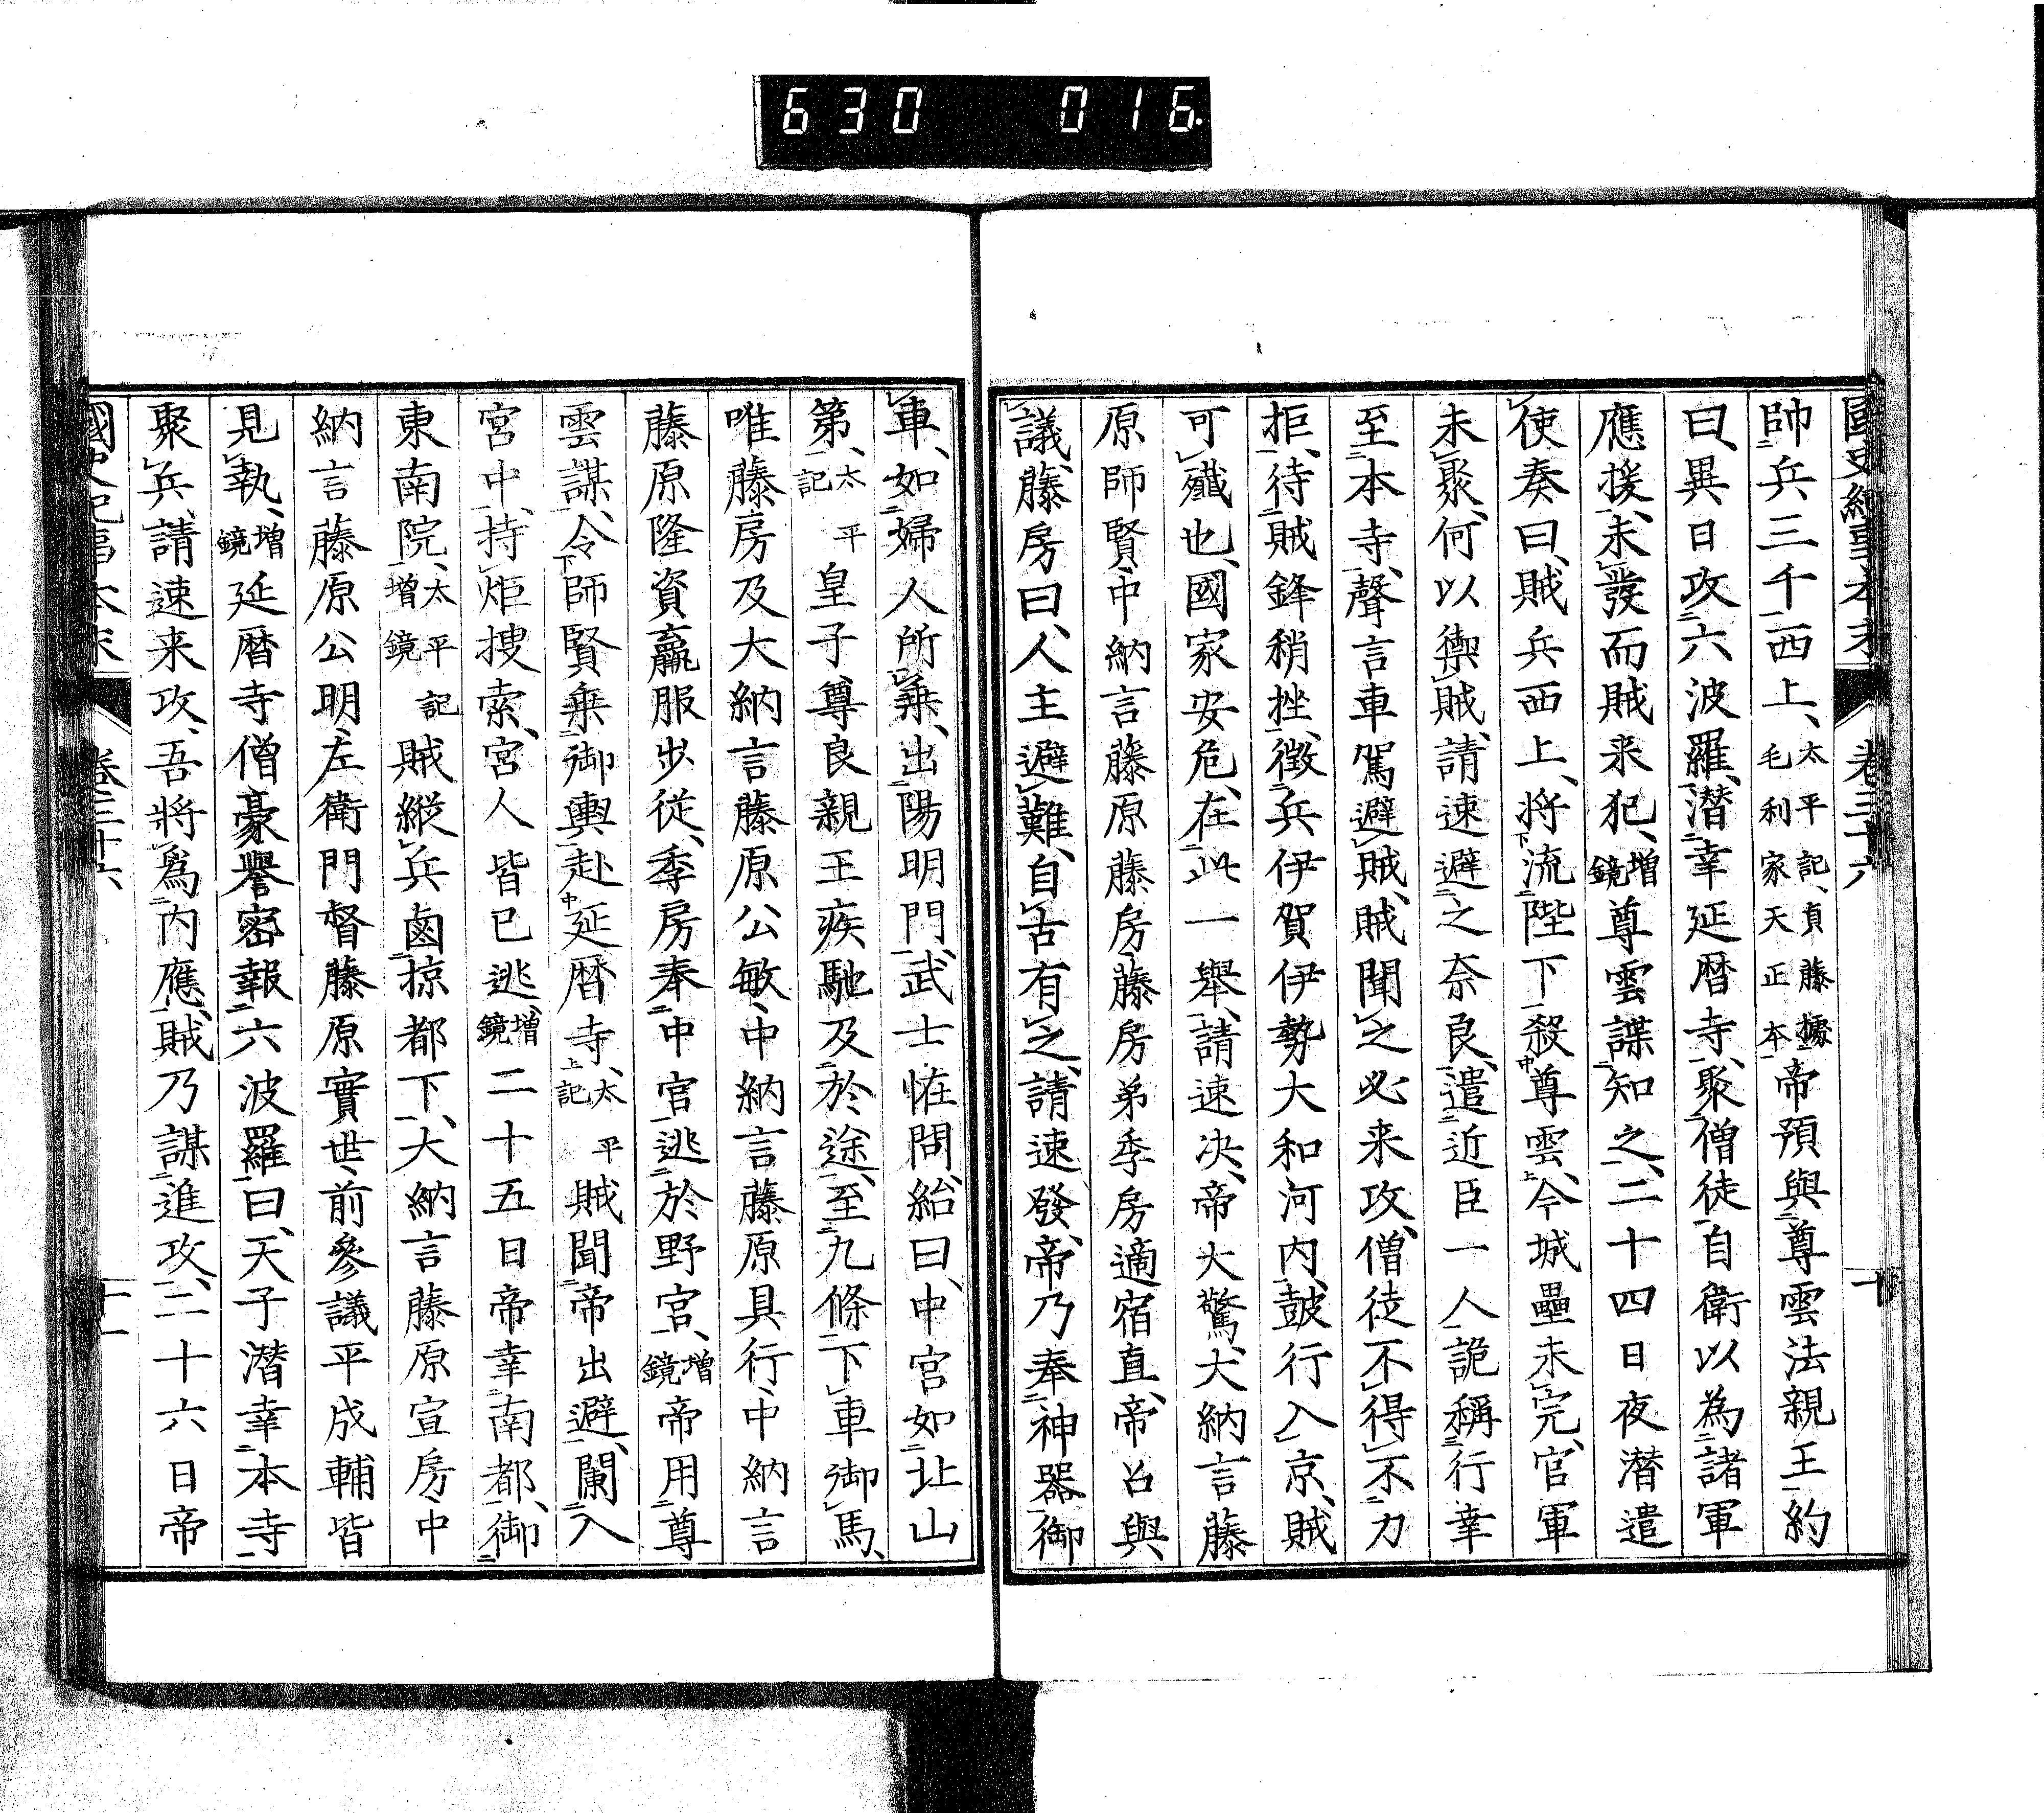 630 016
國史紀事本末 卷三十六 十
帥兵三千西上、太平記、貞藤據毛利家天正本帝預與尊雲法親王約
曰、異日攻六波羅、潛幸延曆寺、聚僧徒自衛以為諸軍
應援、未發而賊来犯、增鏡尊雲諜知之、二十四日夜潜遣
使奏曰、賊兵西上、將流陛下殺尊雲、今城壘未完、官軍
未聚、何以禦賊、請速避之奈良、遣近臣一人詭稱行幸
至本寺、聲言車駕避賊、賊聞之必来攻、僧徒不得不力
拒、待賊鋒稍挫、徴兵伊賀伊勢大和河内、鼓行入京、賊
可殲也、國家安危、在此一舉、請速决、帝大驚、大納言藤
原師賢、中納言藤原藤房、藤房弟季房適宿直、帝召與
議、藤房曰、人主避難、自古有之、請速發、帝乃奉神器御
車、如婦人所乗、出陽明門、武士恠問、紿曰、中宮如北山
第、太平記皇子尊良親王疾馳及於途、至九條下車御馬、
唯藤房及大納言藤原公敏、中納言藤原具行、中納言
藤原隆資羸服步從、季房奉中宮逃於野宮、增鏡帝用尊
雲謀、令師賢乗御輿赴延曆寺、太平記賊聞帝出避、闌入
宮中、持炬搜索、宮人皆已逃、增鏡二十五日帝幸南都、御
東南院、太平記增鏡賊縱兵鹵掠都下、大納言藤原宣房、中
納言藤原公明、左衛門督藤原實世、前參議平成輔皆
見執、增鏡延曆寺僧豪譽密報六波羅曰、天子潜幸本寺
聚兵、請速来攻、吾將爲内應、賊乃謀進攻、二十六日帝
國史紀事本末 卷三十六 十一